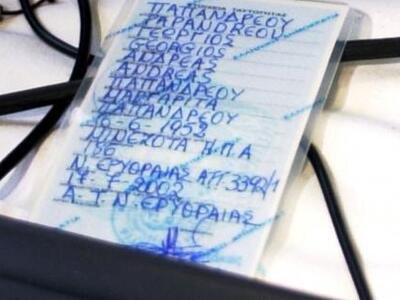 ΠΑΠΑΝΔΡΕΟΥ
PAPANDREOU
ΓΕΩΡΓΙΟΣ
GEORGIOS
ΑΝΔΡΕΑΣ
ANDREAS
ΠΑΠΑΝΔΡΕΟΥ
ΜΑΡΓΑΡΙΤΑ
ΠΑΠΑΝΔΡΕΟΥ
16-6-1952
ΜΙΝΕΣΟΤΑ Η.Π.Α
186
Ν. ΕΡΥΘΡΑΙΑΣ ΑΓΓ. 3392/1
2002
Α.Τ. Ν. ΕΡΥΘΡΑΙΑΣ